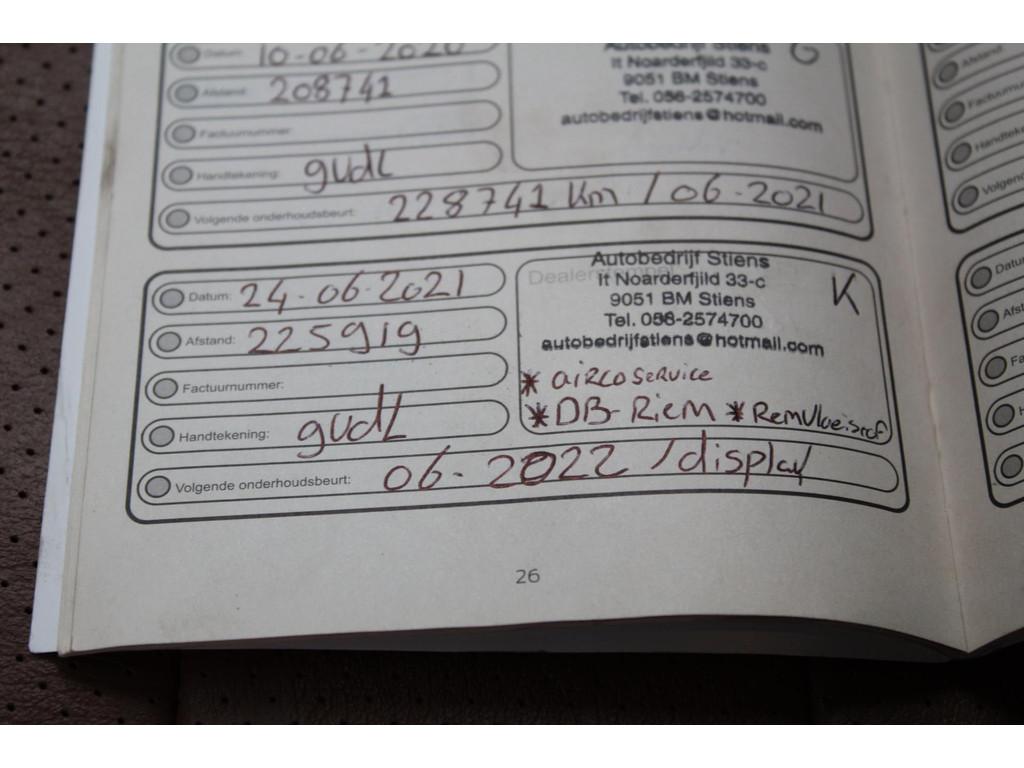 Datum: 10-06-2020
Afstand: 208741
Factuurnummer:
Handtekening: gudL
Volgende onderhoudsbeurt: 228741 Km / 06-2021
Autobedrijf Stiens
It Noarderfjild 33-c
9051 BM Stiens
Tel. 058-2574700
autobedrijfstiens@hotmail.com
G
Datum: 24-06-2021
Afstand: 225919
Factuurnummer:
Handtekening: gudL
Volgende onderhoudsbeurt: 06-2022 /display
Dealerstempel
Autobedrijf Stiens
It Noarderfjild 33-c
9051 BM Stiens
Tel. 058-2574700
autobedrijfstiens@hotmail.com
K
* airco service
* DB-Riem * Remvloeistof
26
Afstand
Factuurnu
Handteke
Volgend
Datu
Afst
Fa
H